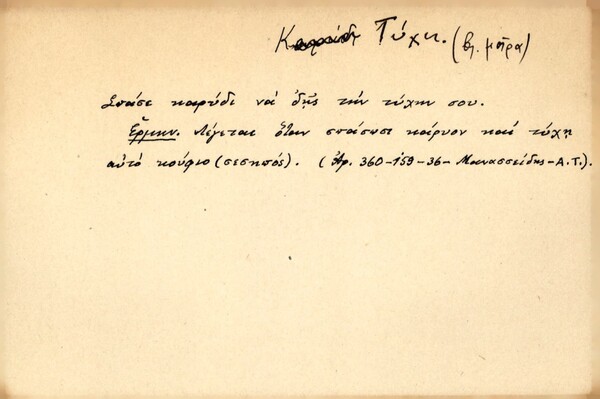 Καρύδι Τύχη. (βλ. μοῖρα)
Σπάσε καρύδι νά δῇς τήν τύχην σου.
Ἑρμην. Λέγεται ὅταν σπάσωσι κάρυον καί τύχῃ
αὐτό κούφιο (σεσηπός). (Ἀρ. 360-159-36- Μανασσείδης-Α.Τ.).